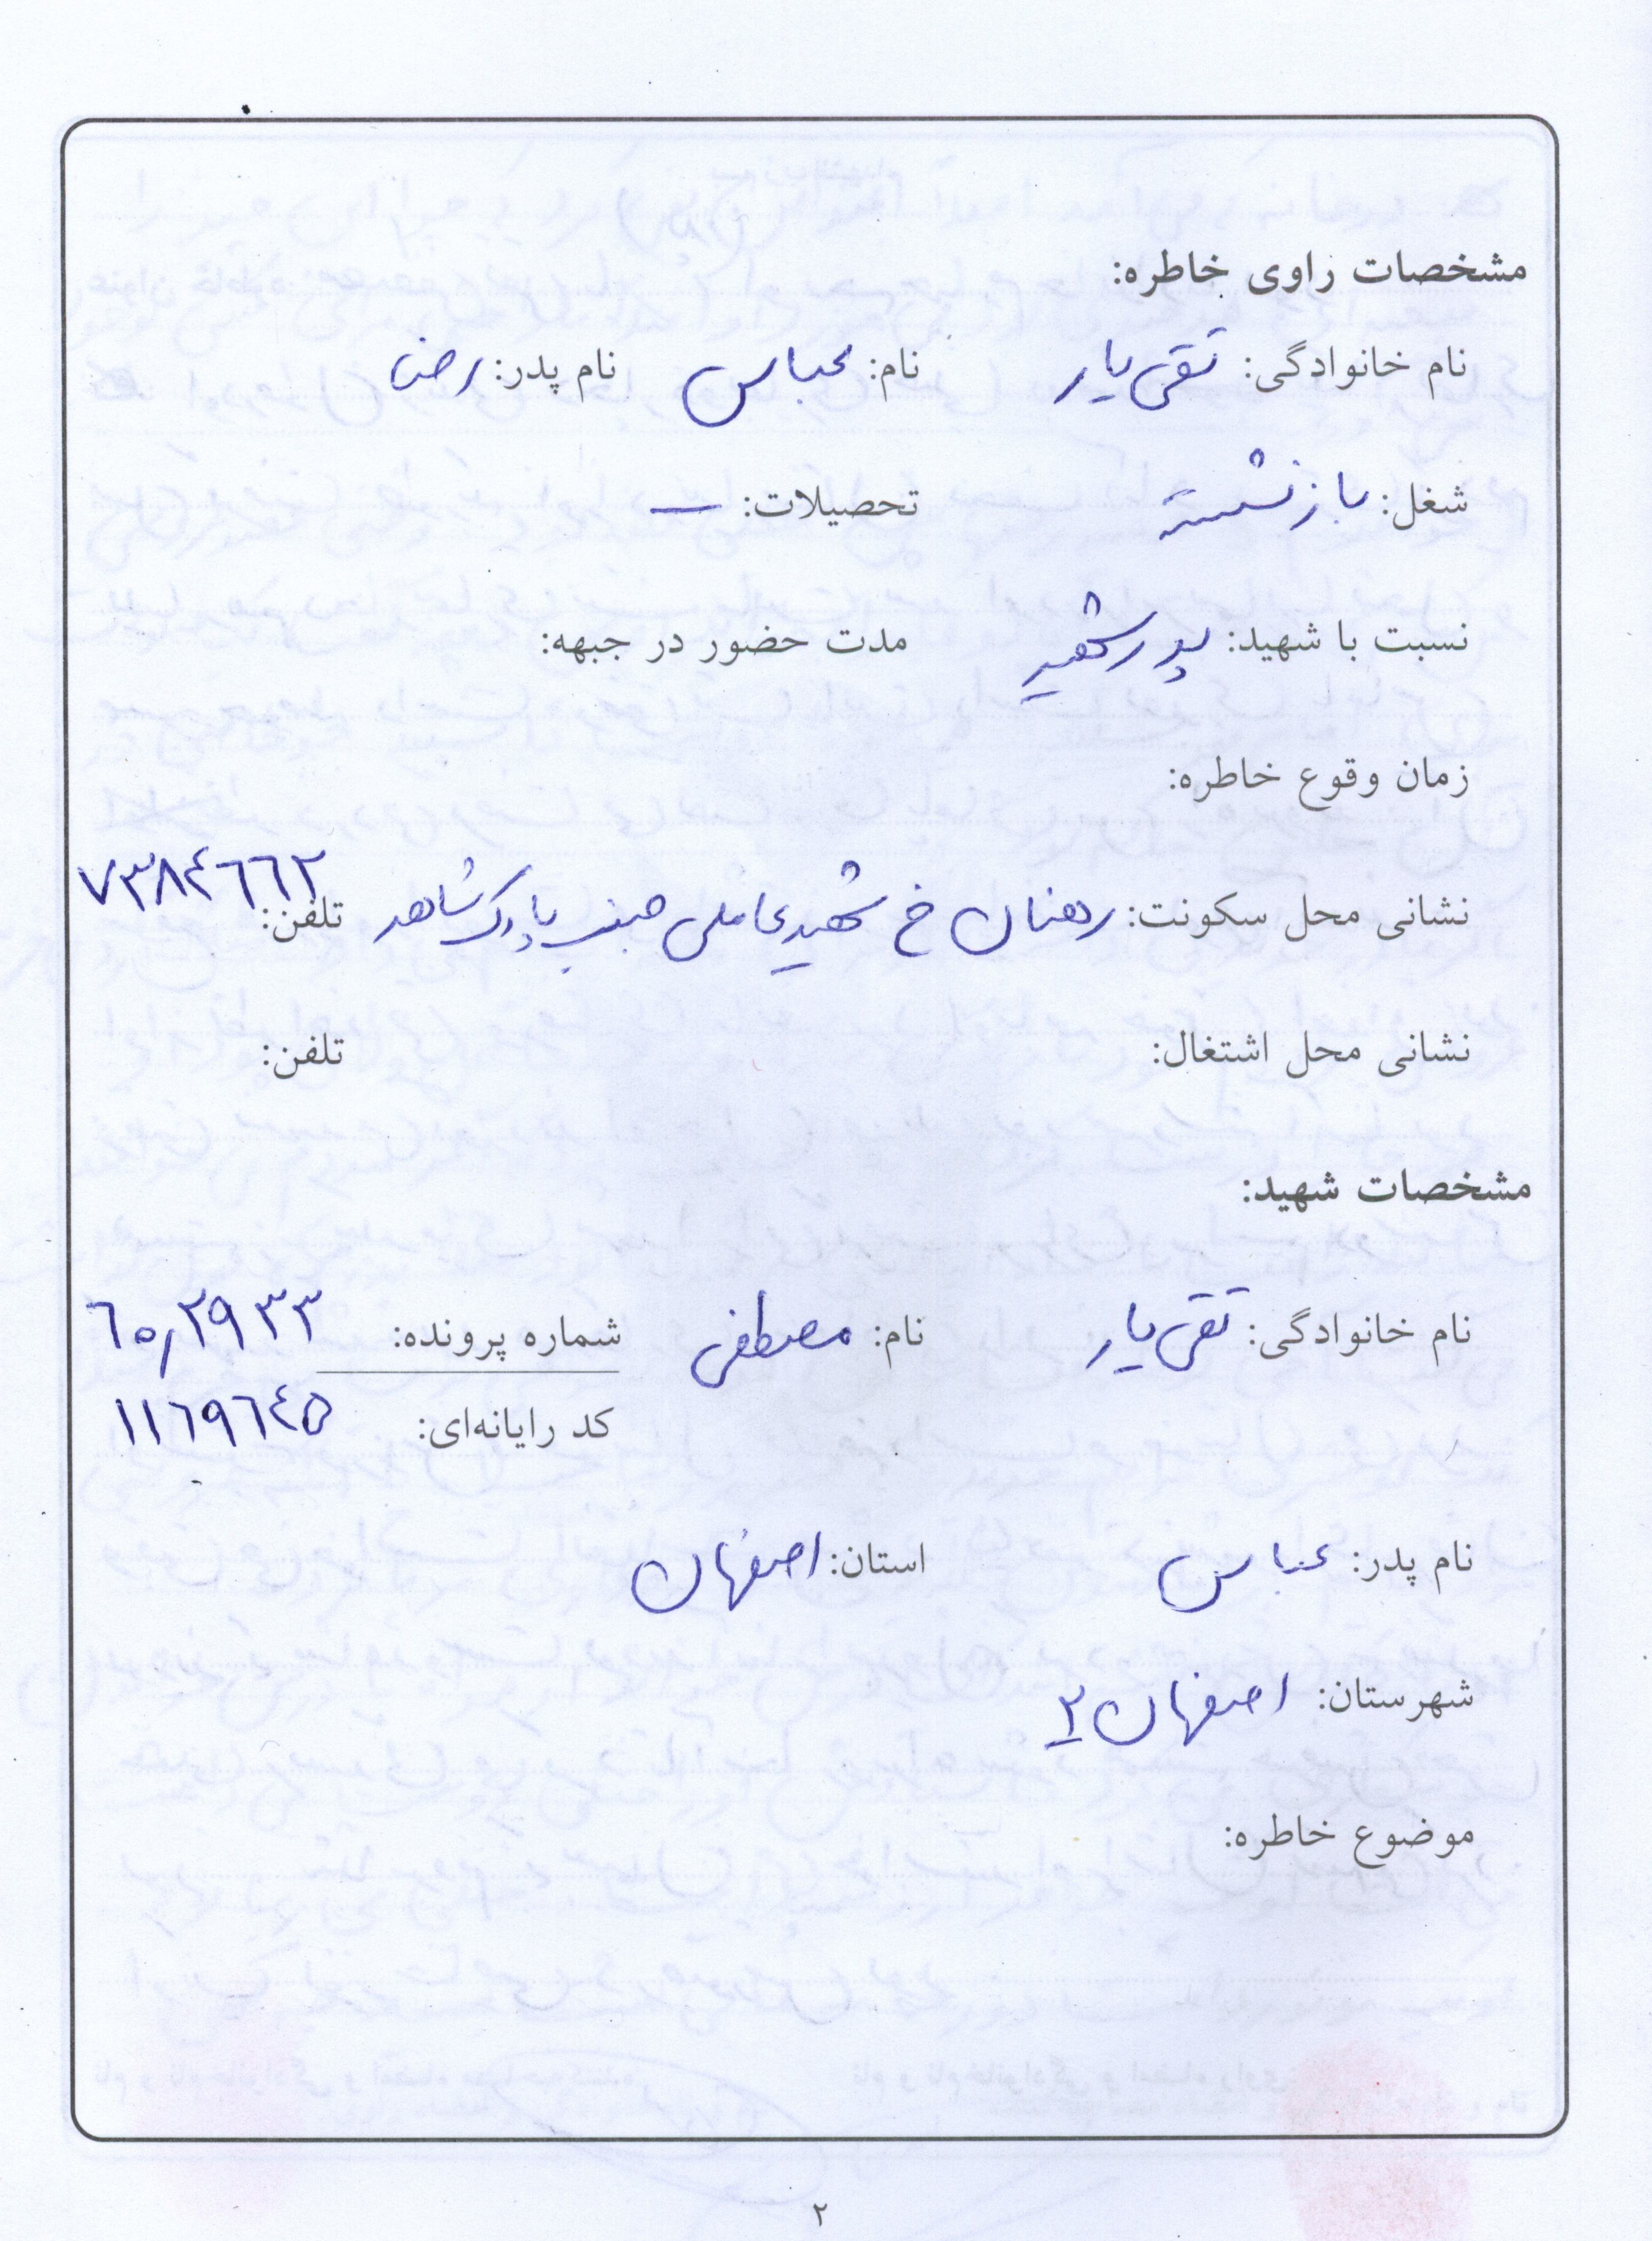 مشخصات راوی خاطره:
نام خانوادگی: تقی یار نام: عباس نام پدر: رضا
شغل: بازنشسته تحصیلات: —
نسبت با شهید: پدر شهید مدت حضور در جبهه:
زمان وقوع خاطره:
نشانی محل سکونت: رهنان خ شهید عاملی جنب پارک شاهد تلفن: ۷۳۸۴۶۶۲
نشانی محل اشتغال: تلفن:
مشخصات شهید:
نام خانوادگی: تقی یار نام: مصطفی شماره پرونده: ۶۵٫۲۹۳۳
کد رایانه‌ای: ۱۱۶۹۶۴۵
نام پدر: عباس استان: اصفهان
شهرستان: اصفهان ۲
موضوع خاطره:
۲